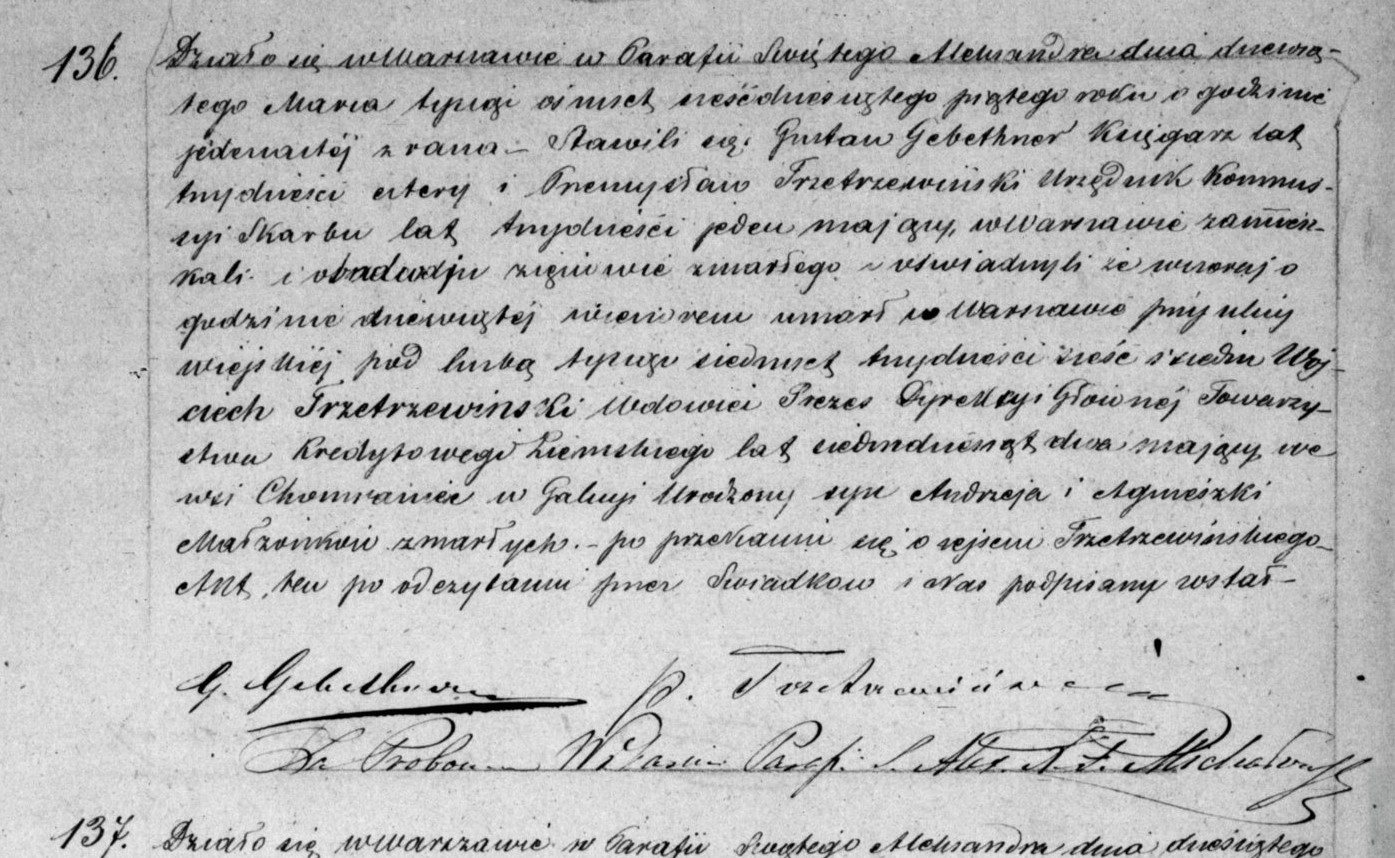 136. Działo się w Warszawie w Parafii Świętego Alexandra dnia dziewią-
tego Marca tysiąc ośmset sześćdziesiątego piątego roku o godzinie
jedenastéj z rana – Stawili się: Gustaw Gebethner Księgarz lat
trzydzieści cztery i Przemysław Trzetrzewiński Urzędnik Kommis-
syi Skarbu lat trzydzieści jeden mający, w Warszawie zamiesz-
kali i obadwdju zięciowie zmarłego – oświadczyli że wczoraj o
godzinie dziewiątéj wieczorem umarł w Warszawie przy ulicy
wiejskiéj pod liczbą tysiąc siedmset trzydzieści sześć i siedm Woj-
ciech Trzetrzewiński Wdowiec Prezes Dyrekcyi Głównéj Towarzy-
stwa Kredytowego Ziemskiego lat siedmdziesiąt dwa mający, we
wsi Chomranice w Galicyi Urodzony syn Andrzeja i Agnieszki
Małżonków zmarłych. – po przekaniu się o zejściu Trzetrzewińskiego
Akt ten po odczytaniu przez Świadków i Nas podpisany został –
G. Gebethner P. Trzetrzewiński
Za Probo Paraf. S. Alex. X. F. Michałow
137. Działo się w Warszawie w Parafii Świętego Alexandra dnia dziesiątego